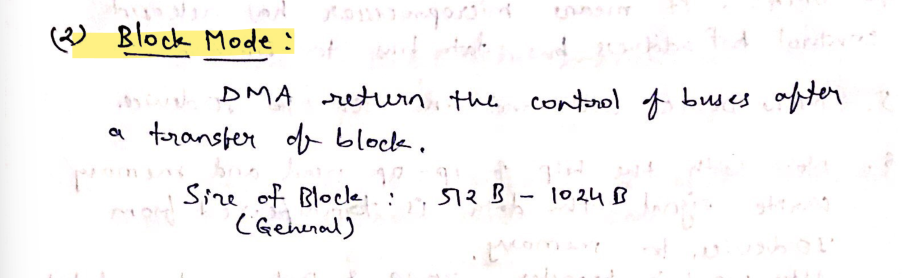 (2) Block Mode :
DMA return the control of buses after
a transfer of block.
Size of Block : 512 B - 1024 B
(General)